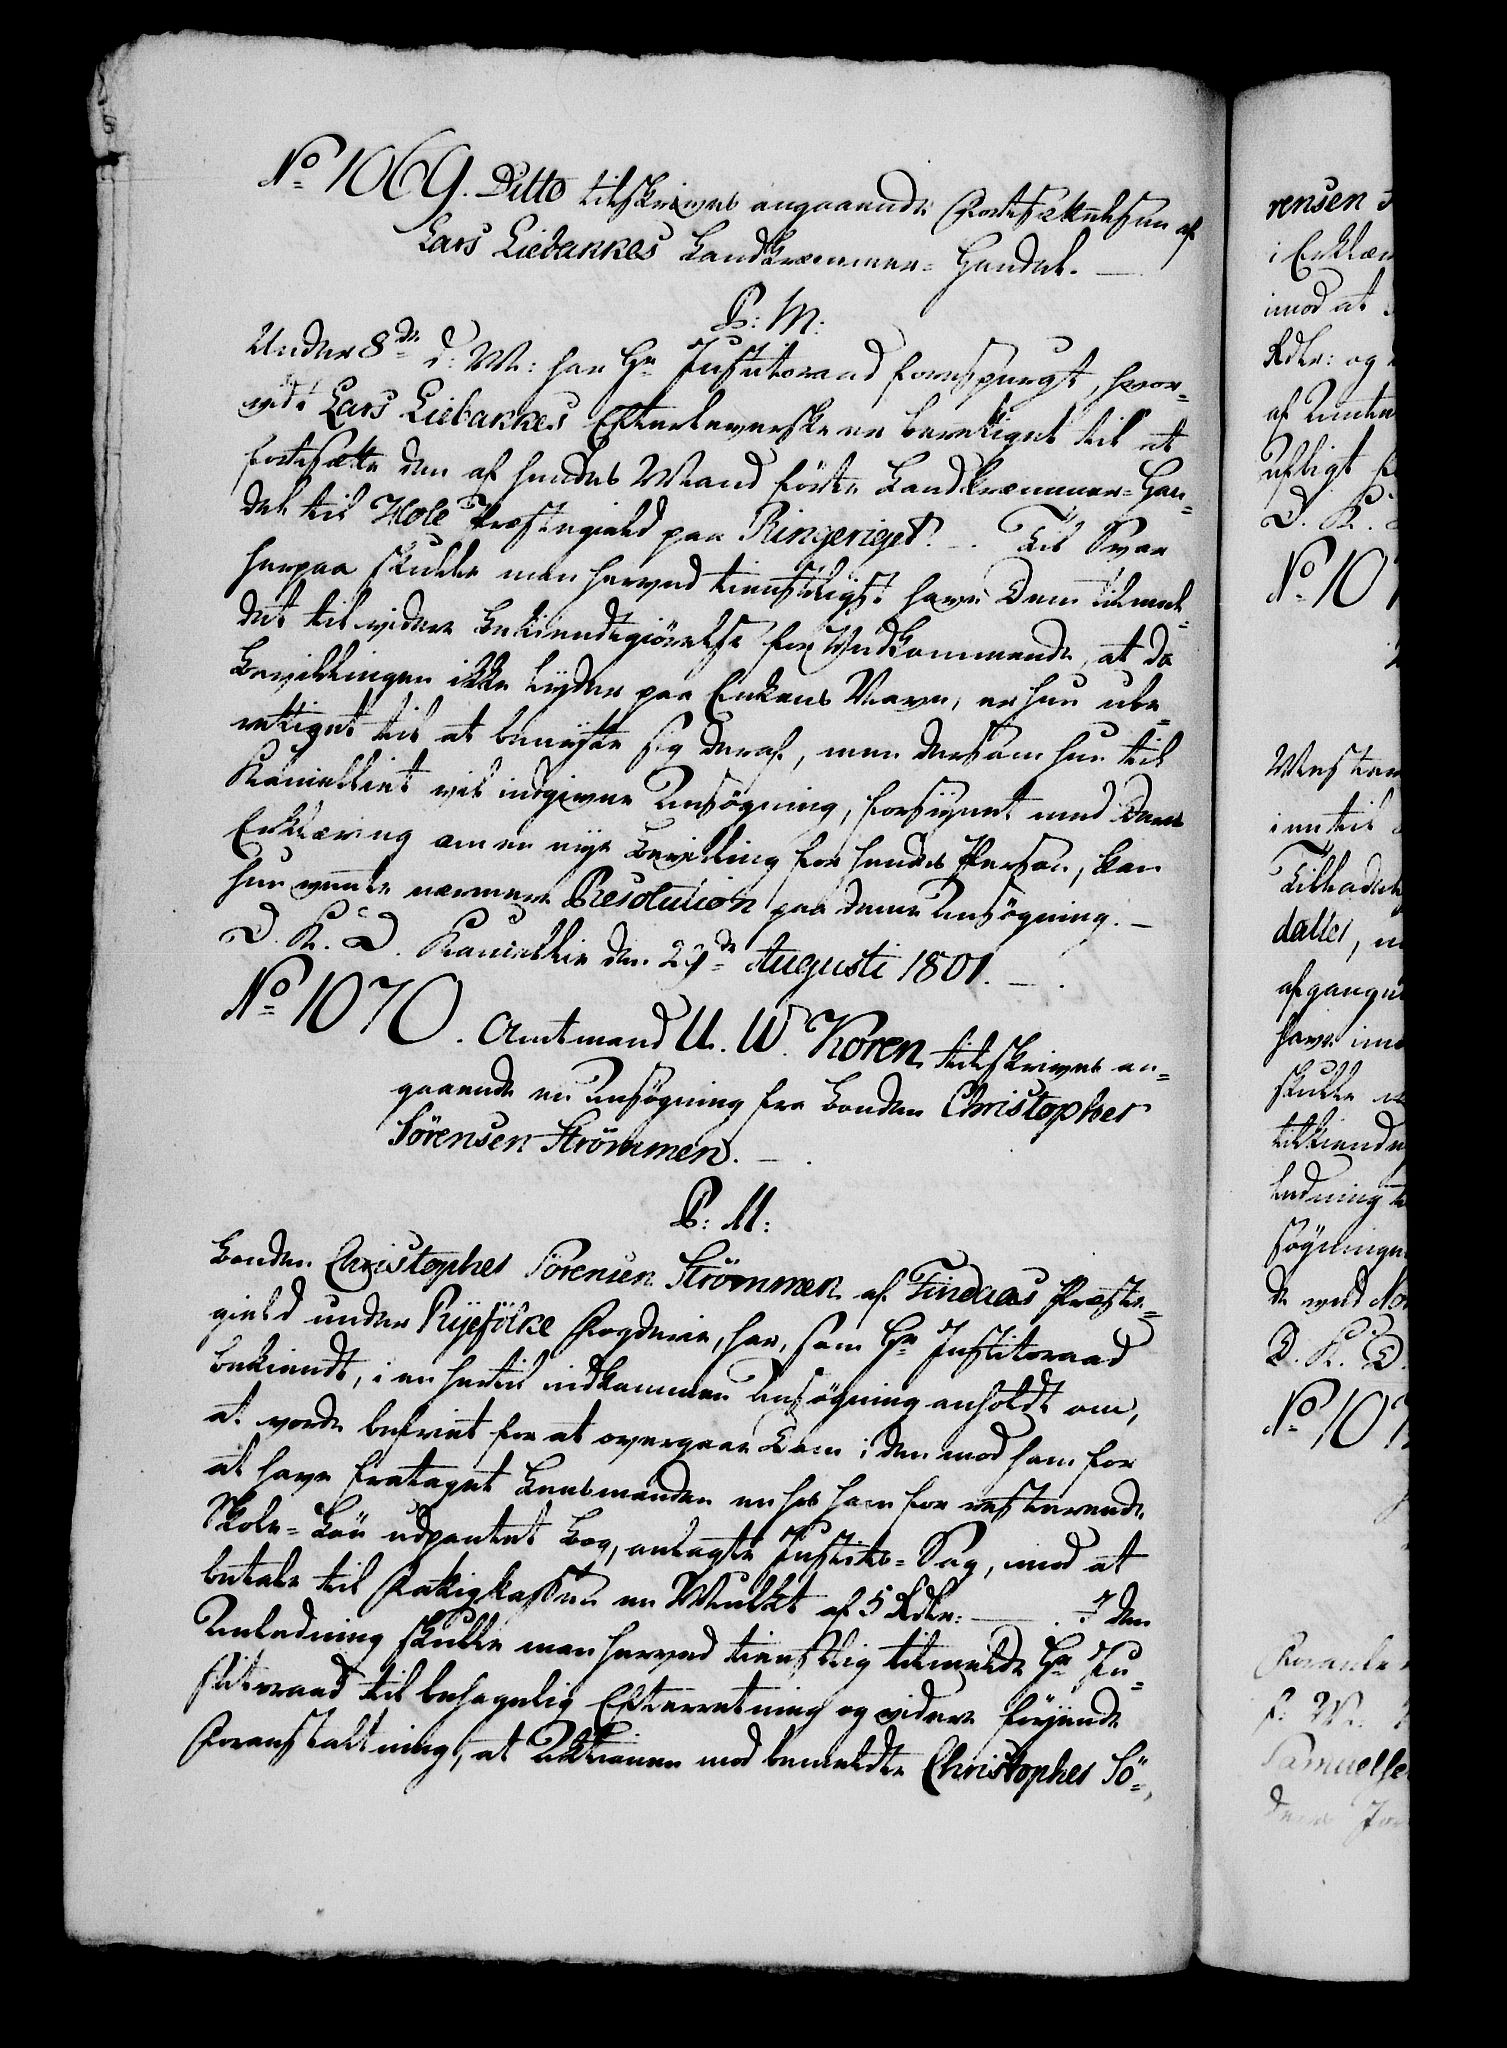 No 1069. Ditto tilskrives angaaende Fortsættelsen af
Lars Liebakkes Landkræmmer-Handel. —
P: M:
Under 8de d: M: har Hr Justitsraad forespurgt, hvor-
vidt Lars Liebakkes Efterleverske er berettiget til at
fortsætte den af hendes Mand förte Landkræmmer-Han-
del til Hole Præstegield paa Ringeriget. — Til Svar
herpaa skulle man herved tienstligst have Dem tilmel-
det til videre Bekiendtgiörelse for Vedkommende, at da
Bevillingen ikke lyder paa Enkens Navn, er hun ube-
rettiget til at benytte sig deraf, men dersom hun til
Kancelliet vil indgive Ansögning, forsynet med Deres
Erklæring om en nye Bevilling for hendes Person, kan
hun vente nærmere Resolution paa denne Ansögning. —
D. K. D. Kancellie den 29de Augusti 1801. —
No 1070. Amtmand U. W. Koren tilskrives an-
gaaende en Ansögning fra Bonden Christopher
Sörensen Strömmen. —
P: M:
Bonden Christopher Sörensen Strömmen af Findaas Præste-
gield under Ryefölke Fogderie, har, som Hr Justitsraad
bekiendt, i en hertil indkommen Ansögning anholdt om,
at vorde befriet for at overgaae Dom i den mod ham for
at have frataget Lensmanden en hos ham for resterende
Skole-Lön udpantet Bog, anlagte Justits-Sag, mod at
betale til Fattigkassen en Mulkt af 5 Rdlr: — I den
Anledning skulle man herved tienstlig tilmelde Hr Ju-
stitsraad til behagelig Efterretning og videre föyende
Foranstaltning, at Aktionen mod bemeldte Christopher Sö-
rensen
i Erklæ
imod at
Rdlr: og
af Amtm
D. K.
No 107
Tilladels
dalles,
afgangne
have
skulle
tilkiende
ledning
D. K. D.
No 107
Samuelse